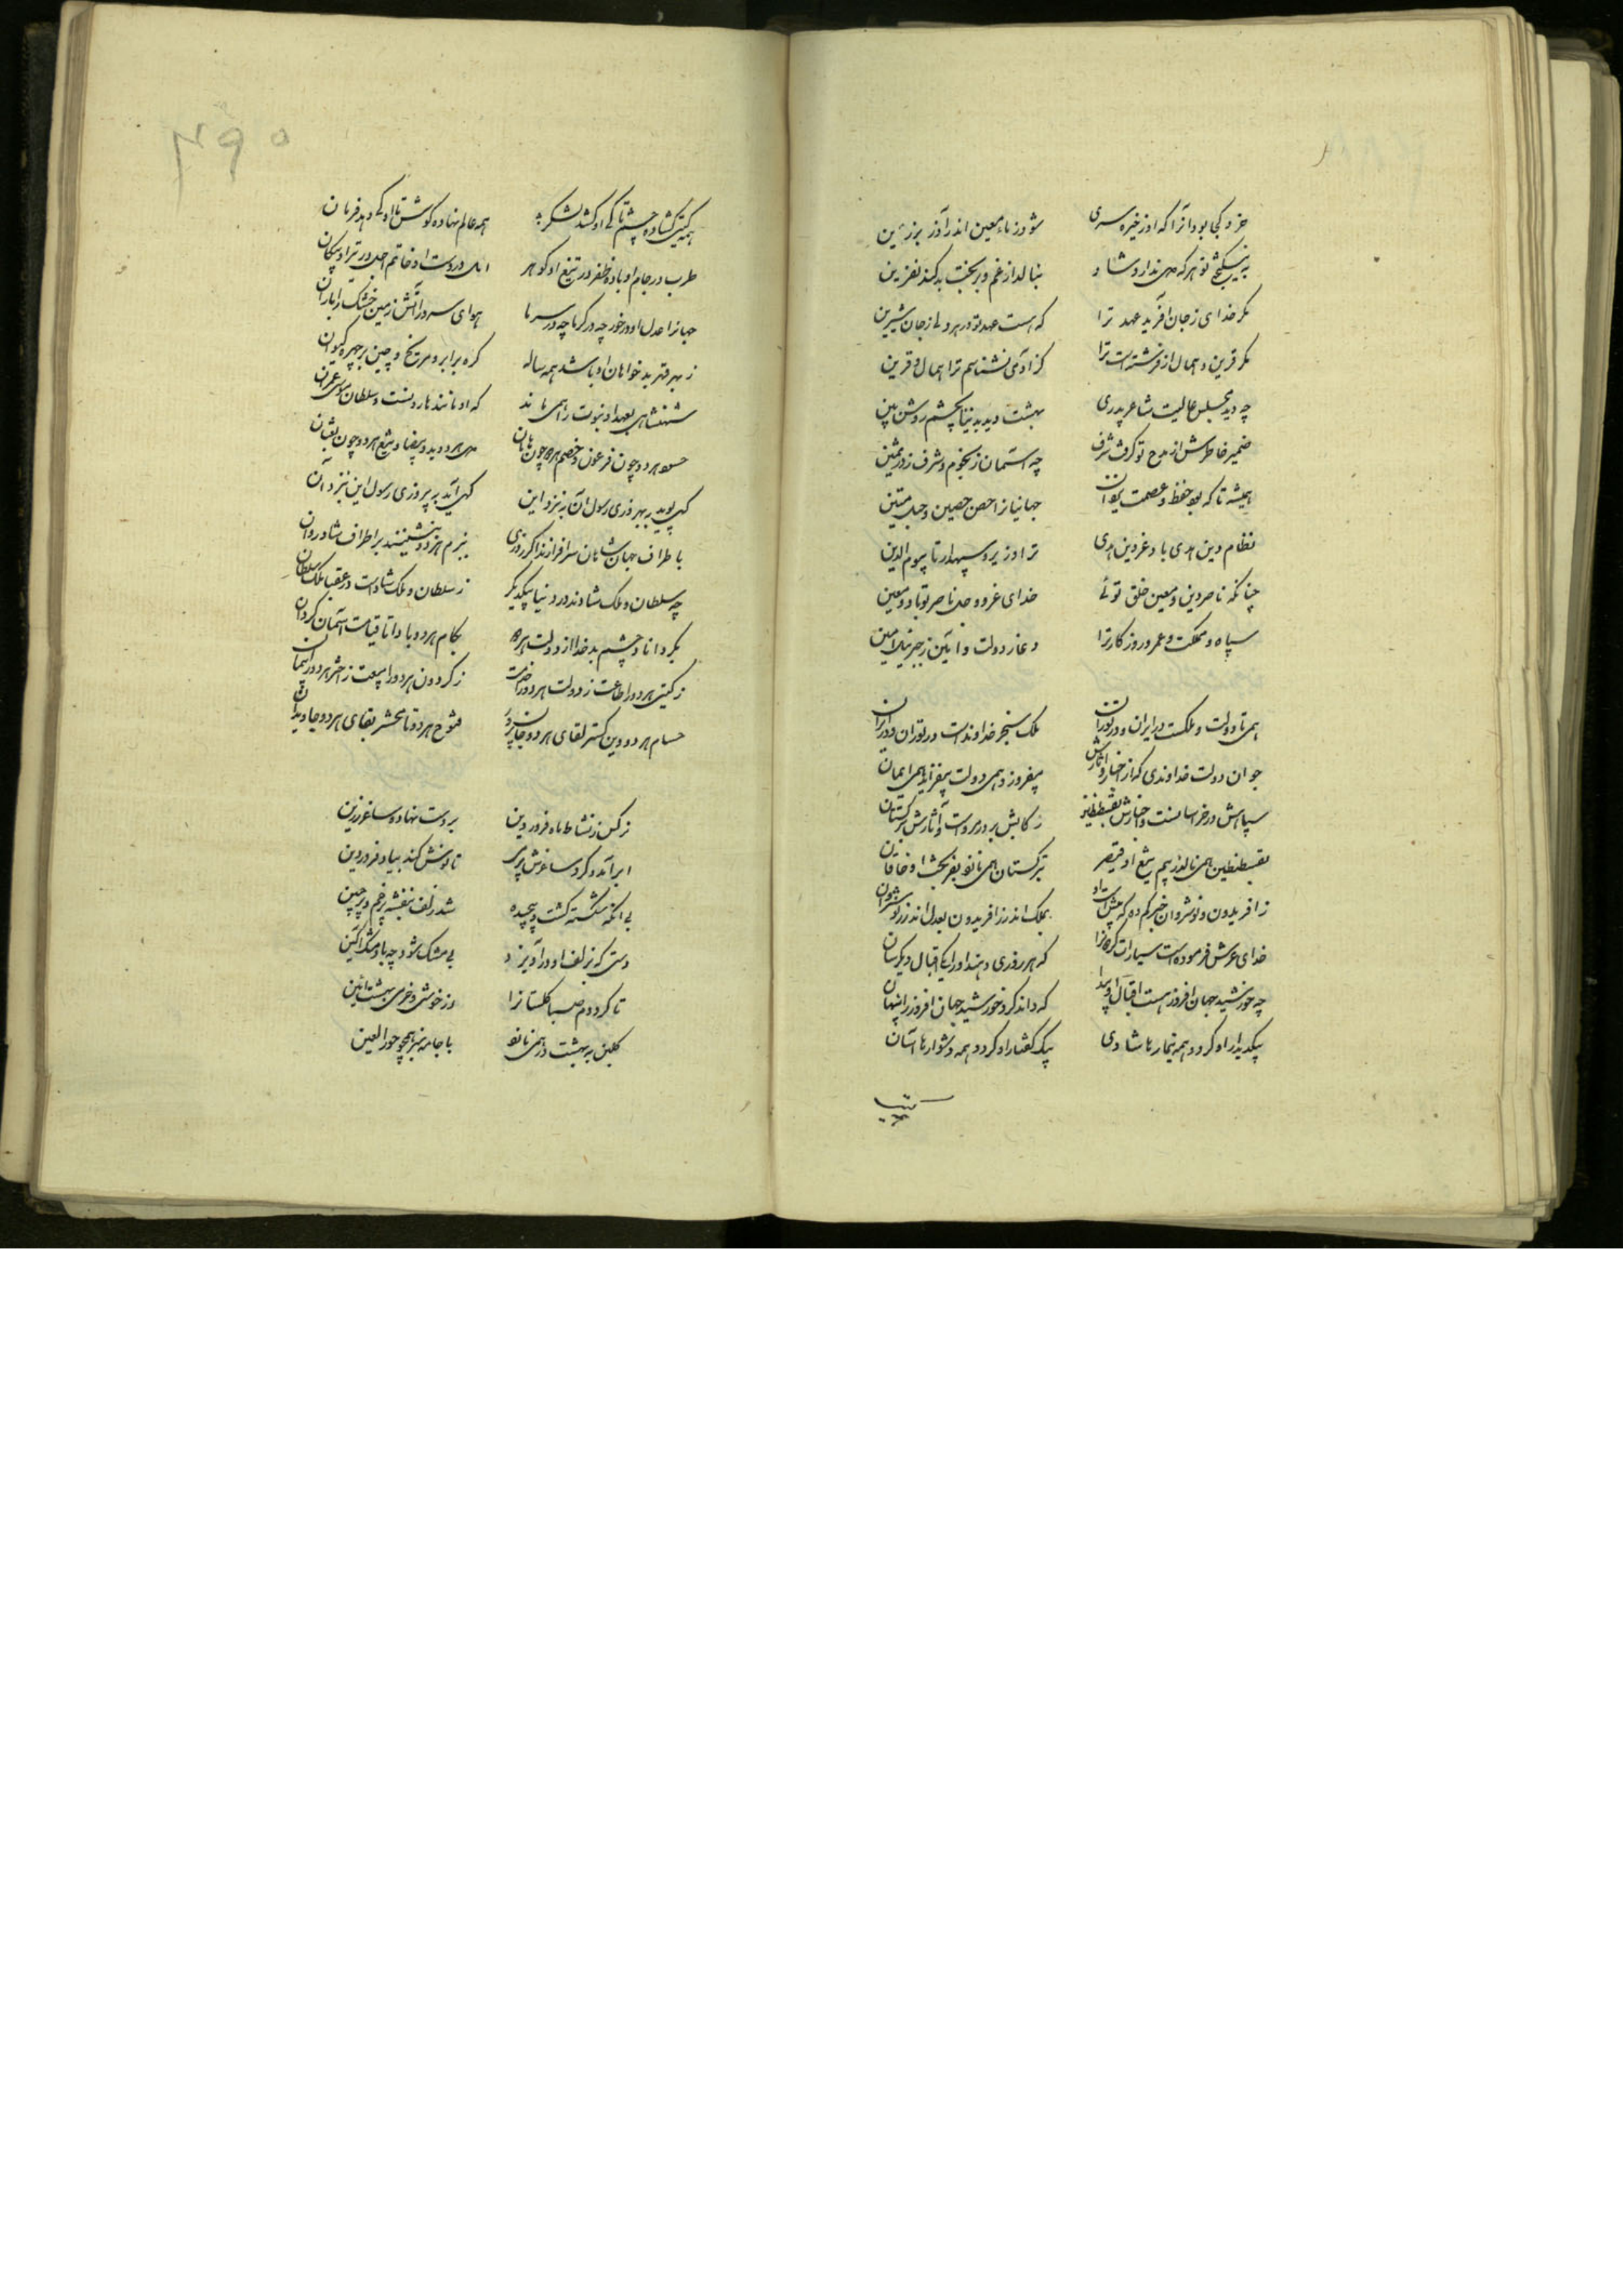 خرد کجا بود آنرا که او ز خیره سری
شود ز ماء معین اندر آذر برزین
هر که همی ندارد شاد
بنالد از غم و بر بخت بد کند نفرین
مگر خدای ز جان آفرید عهد ترا
که هست عهد تو در هر دلی ز جان شیرین
مگر قرین و همال از فرشته است ترا
کز آدمی نشناسم ترا همال و قرین
چه دید مجلس عالیت شاعر پدری
بهشت دید بدنیا بچشم روشن بین
ضمیر خاطرش از مدح تو گرفت شرف
چه آسمان ز نجوم و شرف ز در ثمین
همیشه تا که بود حفظ و عصمت یزدان
جهانیانرا حصن حصین و حبل متین
نظام دین هدی باد و عز دین هدی
ترا وزیر و سپهدار تا بیوم الدین
چنانکه ناصر دین و معین خلق توئی
خدای عز و جل ناصر تو باد و معین
سپاه و مملکت و عمر و روزگار ترا
دعا ز دولت و آمین ز جبرئیل امین
همی تا دولت و ملکست در ایران و در توران
ملک سنجر خداوندست در توران و در ایران
جوان دولت خداوندی که از اخبار و آثارش
بیفروزد همی دولت بیفزاید همی ایمان
سپاهش در خراسانست و اخبارش بقسطنطین
رکابش بر در مروست و آثارش بترکستان
بقسطنطین همی نالد ز بیم تیغ او قیصر
بترکستان همی نازد بفر بخت او خاقان
ز افریدون و نوشروان خبر کم ده که پیش است او
بملک اندر ز افریدون بعدل اندر ز نوشروان
خدای عرش فرموده است سیارات گردونرا
که هر روزی دهند او را یکی اقبال دیگر سان
چه خورشید جهان افروز هست اقبال او پیدا
که داند کرد خورشید جهان افروز را پنهان
بیک دیدار او گردد همه تیمارها شادی
بیک گفتار او گردد همه دشوارها آسان
همه گیتی گشاده چشم تا کی او کشد لشکر
همه عالم نهاده گوش تا او کی دهد فرمان
طرب در جام او باده ظفر در تیغ او گوهر
امل در دست او خاتم اجل در تیر او پیکان
جهانرا عدل او در خور چه در گرما چه در سرما
هوای سرد را آتش زمین خشک را باران
ز بهر قهر بدخواهان او باشد همه ساله
گره بر ابرو مریخ و چین بر چهره کیوان
شهنشاهی بعهد او نبوت را همی ماند
که او مانند هارونست و سلطان موسی عمران
حسود هر دو چون فرعون و خصم هر دو چون هامان
ید بیضا و تیغ هر دو چون ثعبان
گهی پوید به بهروزی رسول آن به نزد این
گهی آید به پیروزی رسول این بنزد آن
باطراف جهان شاهان سرافرازند اگر روزی
ببزم هر دو بنشینند بر اطراف شادروان
چه سلطان و ملک شادند در دنیا بیکدیگر
ز سلطان و ملک شادست در عقبا ملک سلطان
مگرداناد چشم بد خدا از دولت هر دو
بکام هر دو بادا تا قیامت آسمان گردان
ز گیتی هر دو را طاعت ز دولت هر دو را خدمت
ز گردون هر دو را بیعت ز اختر هر دو را پیمان
حسام هر دو دین گستر لقای هر دو جان پرور
فتوح هر دو تا محشر بقای هر دو جاویدان
نرگس ز نشاط ماه فروردین
بر دست نهاده ساغر زرین
ابر آمد و کرد ساغرش پر می
تا نوش کند بیاد فروردین
بی آنکه شکسته گشت و پیچیده
شد زلف بنفشه پر خم و پر چین
دستی که بزلف او در آویزد
بی مشک شود چه باد مشک آگین
تا کرد دم صبا گلستانرا
از خوشی و خرمی بهشت آئین
گلبن به بهشت در همی نازد
با جامه سبز همچو حور العین